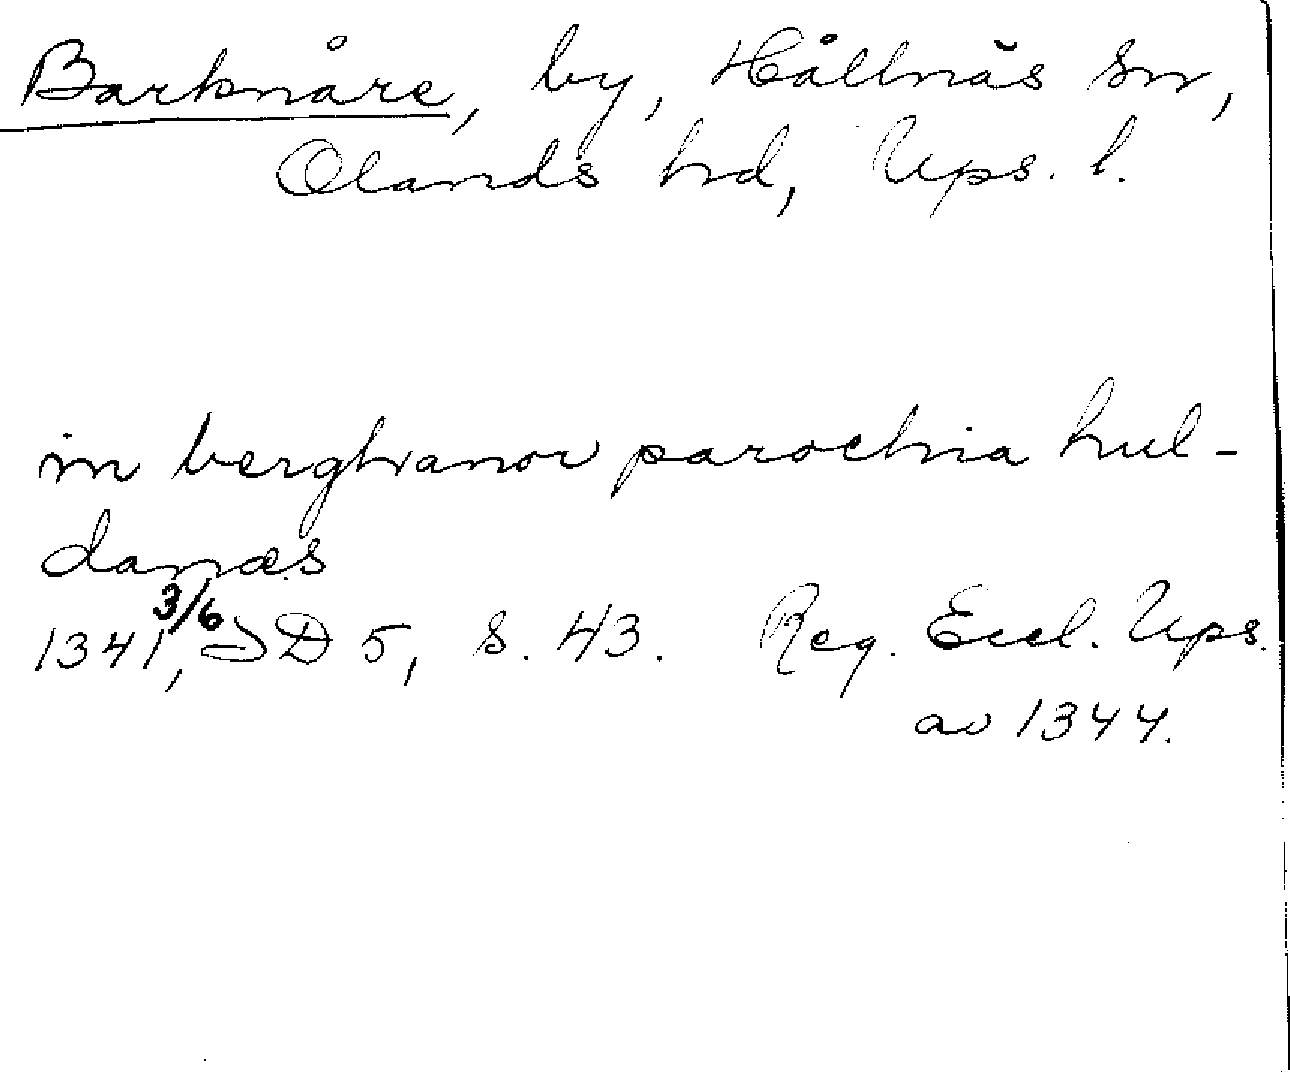 Barknåre, by, Hållnäs sn,
Olands hd, Ups. l.
in berghanor parochia hul-
danæs
1341 3/6, SD 5, s. 43. Reg. Eccl. Ups.
av 1344.